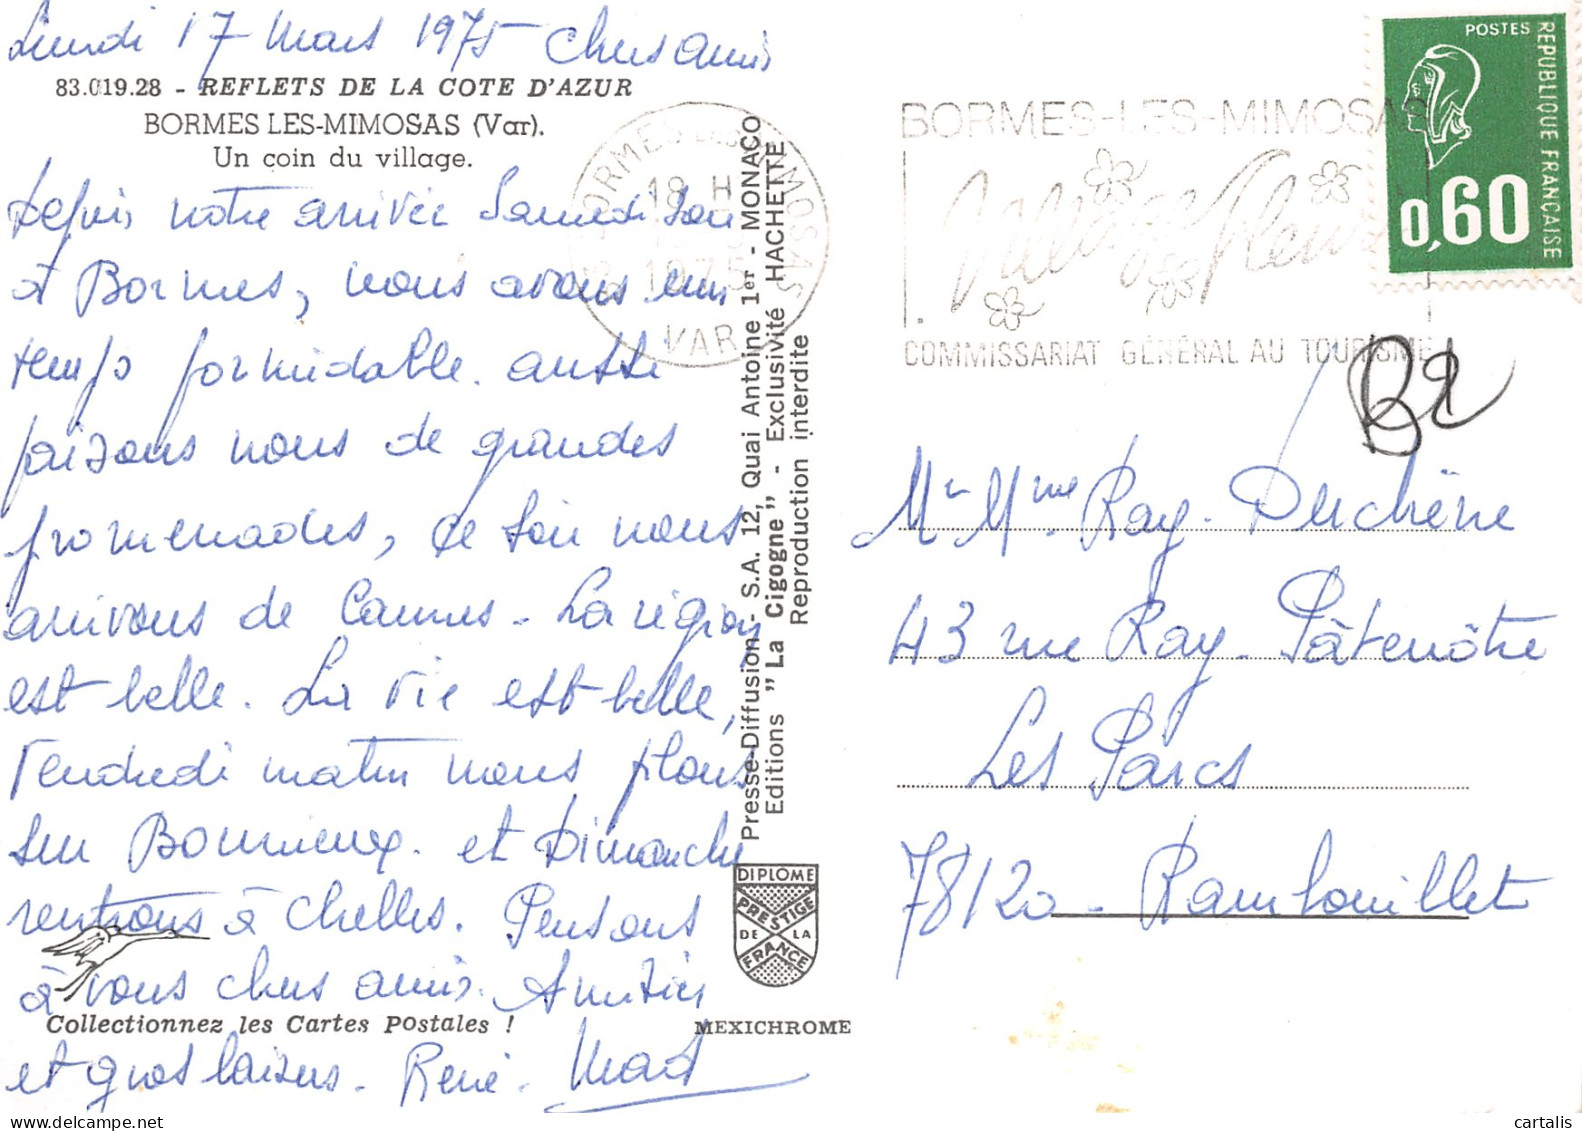 Lundi 17 Mars 1975 Chers amis
83.019.28 - REFLETS DE LA COTE D'AZUR
BORMES LES-MIMOSAS (Var).
Un coin du village.
Depuis notre arrivée Samedi soir
à Bormes, nous avons un
temps formidable. aussi
faisons nous de grandes
promenades, ce soir nous
arrivons de Cannes - La région
est belle. La vie est belle,
Vendredi matin nous filons
sur Bonnieux. et Dimanche
rentrons à Chelles. Pensons
à vous chers amis. Amitiés
Collectionnez les Cartes Postales !
et gros baisers. René.
Presse-Diffusion - S.A. 12, Quai Antoine 1er - MONACO
Editions "La Cigogne" - Exclusivité HACHETTE
Reproduction interdite
DIPLOME
PRESTIGE
DE LA
FRANCE
MEXICHROME
BORMES LES MIMOSAS
18 H
1975
VAR
BORMES-LES-MIMOSAS
Village Fleuri
COMMISSARIAT GÉNÉRAL AU TOURISME
POSTES
REPUBLIQUE FRANÇAISE
0,60
Mr Mme Ray. Duchêne
43 rue Ray. Pâtenôtre
Les Parcs
78120 - Rambouillet
cartalis